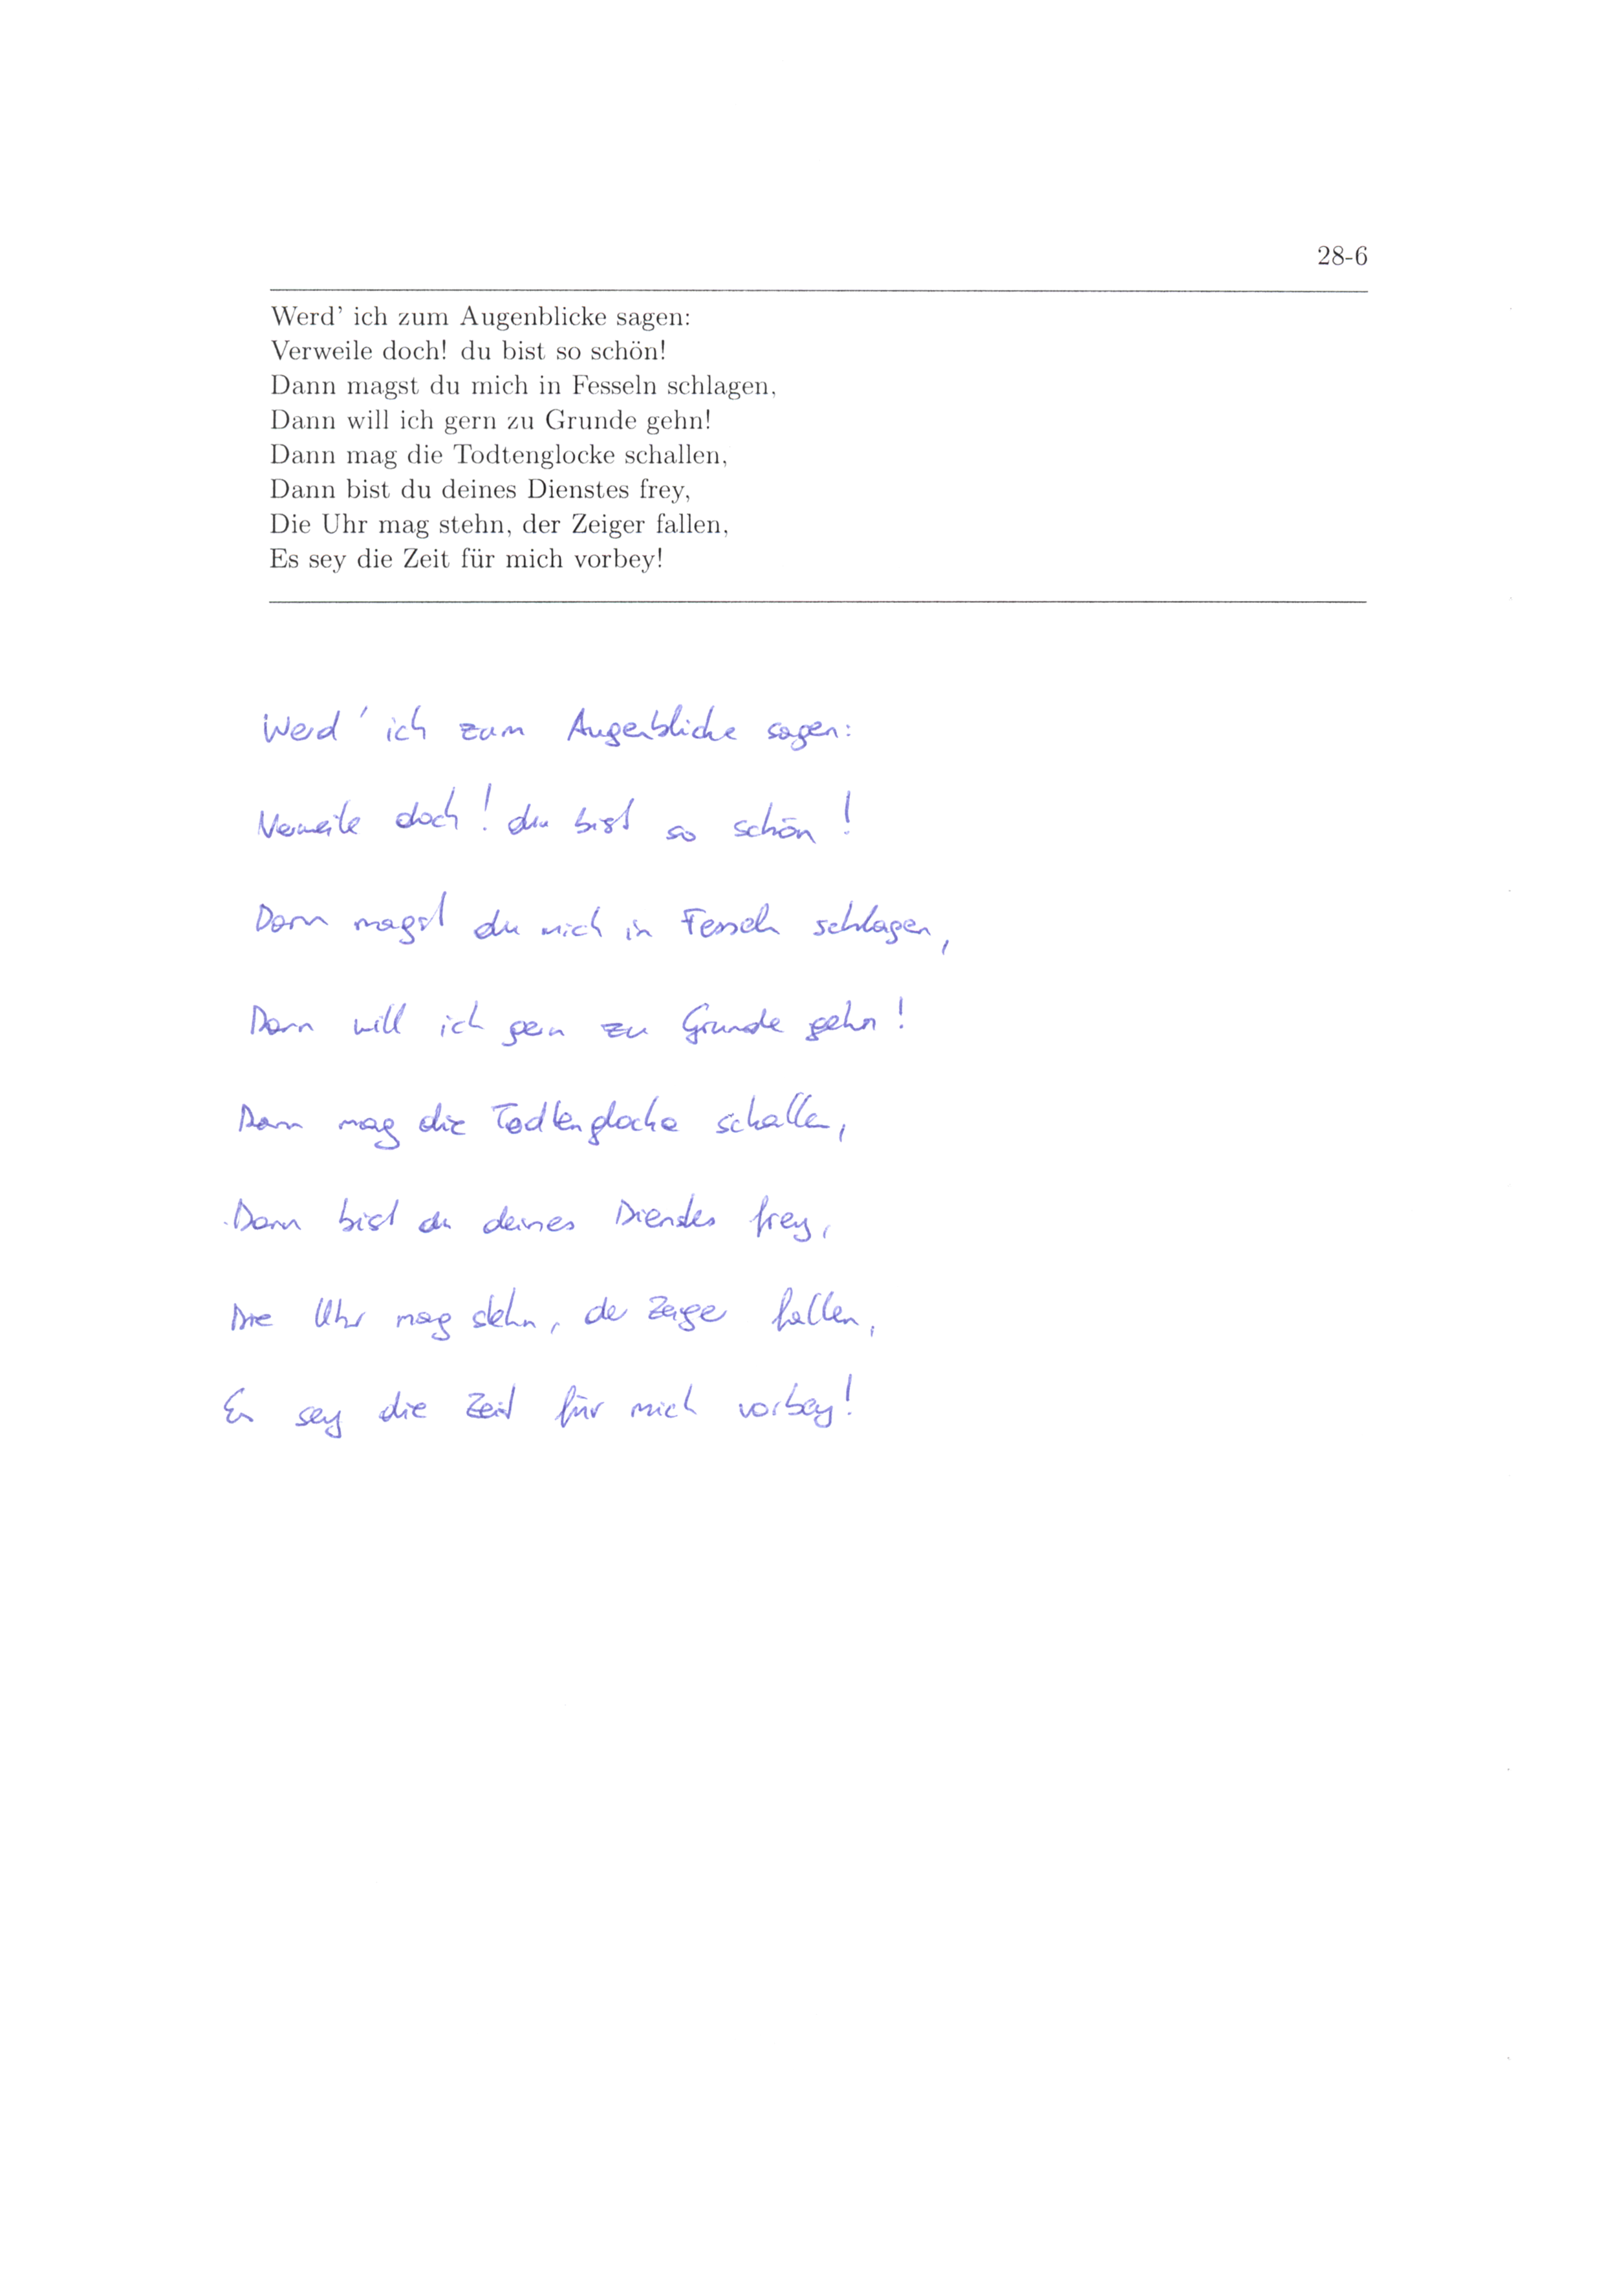 28-6
Werd' ich zum Augenblicke sagen:
Verweile doch! du bist so schön!
Dann magst du mich in Fesseln schlagen,
Dann will ich gern zu Grunde gehn!
Dann mag die Todtenglocke schallen,
Dann bist du deines Dienstes frey,
Die Uhr mag stehn, der Zeiger fallen,
Es sey die Zeit für mich vorbey!
Werd' ich zum Augenblicke sagen:
Verweile doch! du bist so schön!
Dann magst du mich in Fesseln schlagen,
Dann will ich gern zu Grunde gehn!
Dann mag die Todtenglocke schallen,
Dann bist du deines Dienstes frey,
Die Uhr mag stehn, der Zeiger fallen,
Es sey die Zeit für mich vorbey!